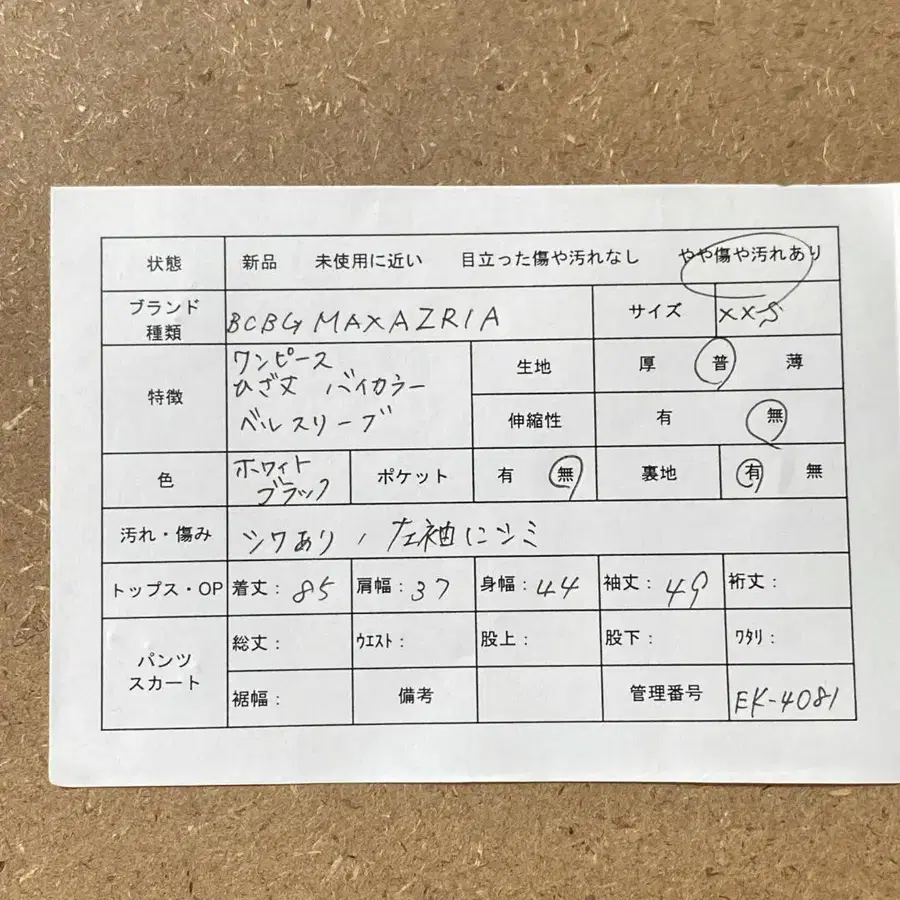 状態 新品 未使用に近い 目立った傷や汚れなし やや傷や汚れあり
ブランド 種類 BCBG MAXAZRIA サイズ XXS
特徴 ワンピース
ひざ丈 バイカラー
ベルスリーブ
生地 厚 普 薄
伸縮性 有 無
色 ホワイト
ブラック
ポケット 有 無 裏地 有 無
汚れ・傷み シワあり、左袖にシミ
トップス・OP 着丈: 85 肩幅: 37 身幅: 44 袖丈: 49 裄丈:
パンツ
スカート
総丈: ウエスト: 股上: 股下: ワタリ:
裾幅: 備考 管理番号 EK-4081